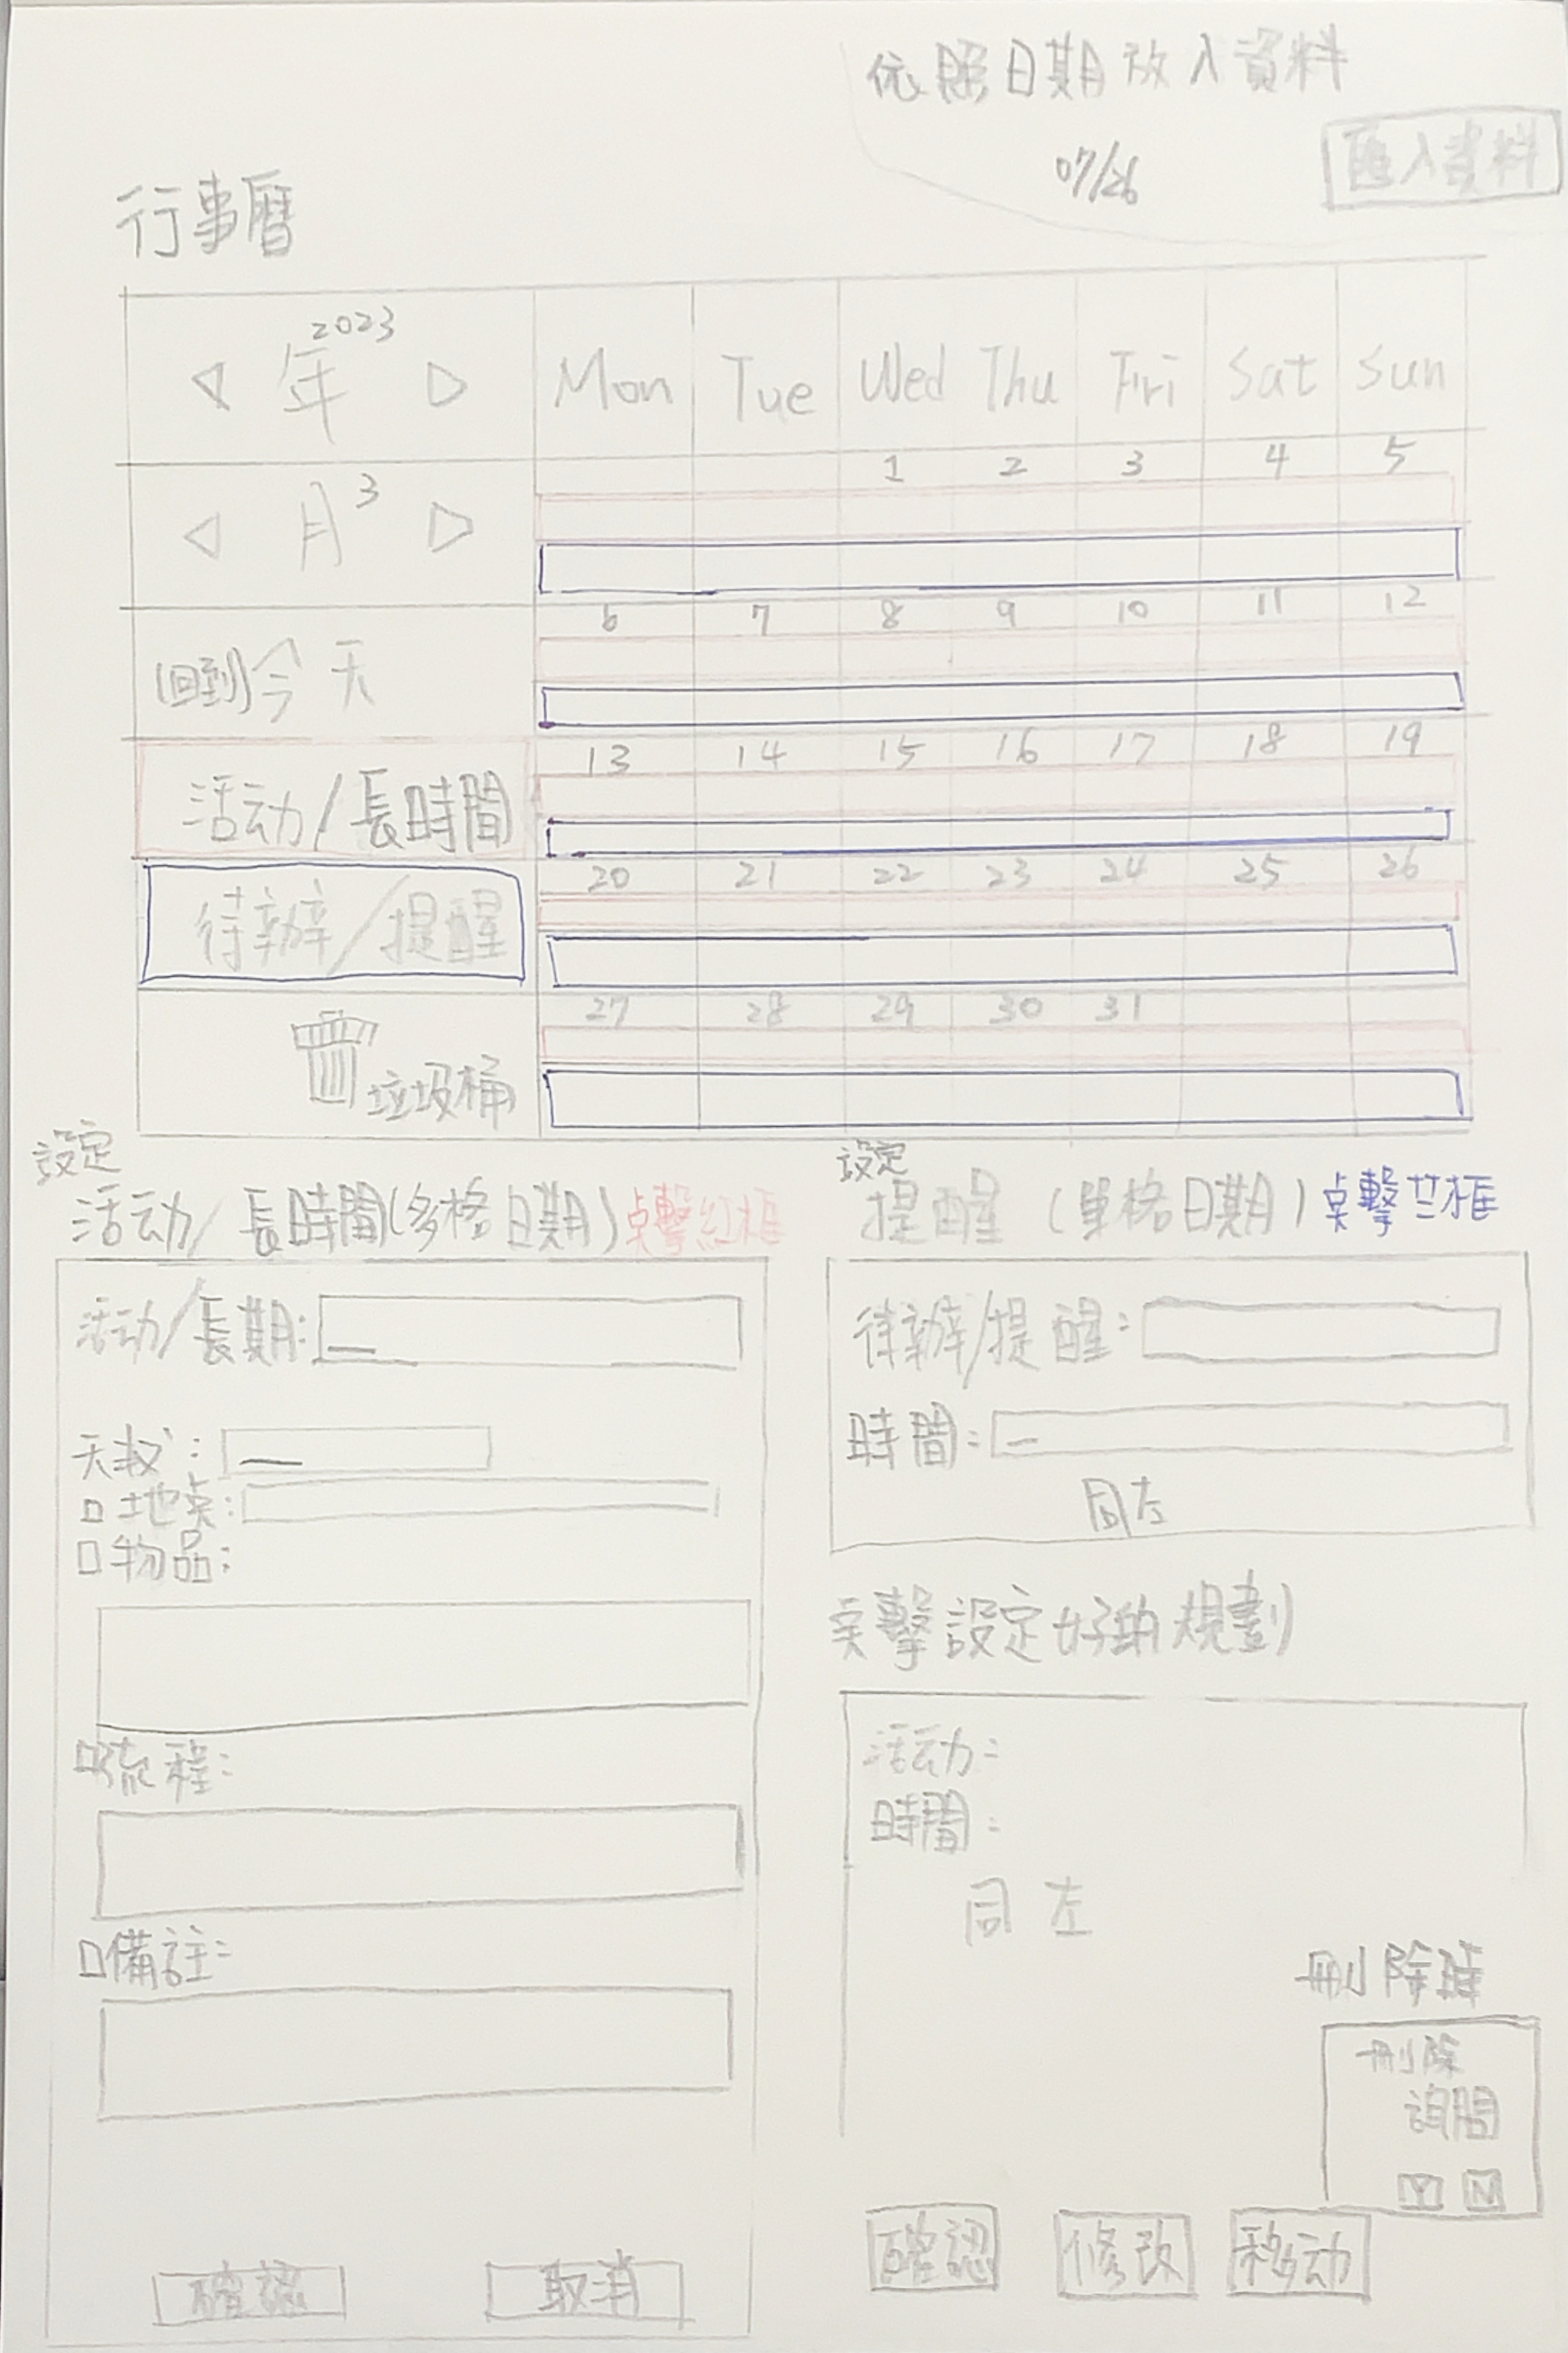 依照日期放入資料
07/26
匯入資料
行事曆
◁ 年 2023 ▷ Mon Tue Wed Thu Fri Sat Sun
◁ 月 3 ▷ 1 2 3 4 5
(回到)今天 6 7 8 9 10 11 12
活动/長時間 13 14 15 16 17 18 19
待辦/提醒 20 21 22 23 24 25 26
垃圾桶 27 28 29 30 31
設定
活动/長時間(多格日期)点擊紅框
活动/長期:
天数:
□地点:
□物品:
□流程:
□備註:
確認 取消
設定
提醒(單格日期)点擊芷框
待辦/提醒:
時間:
同左
点擊設定好的規劃
活动:
時間:
同左
刪除
刪除
詢問
Y N
確認 修改 移动